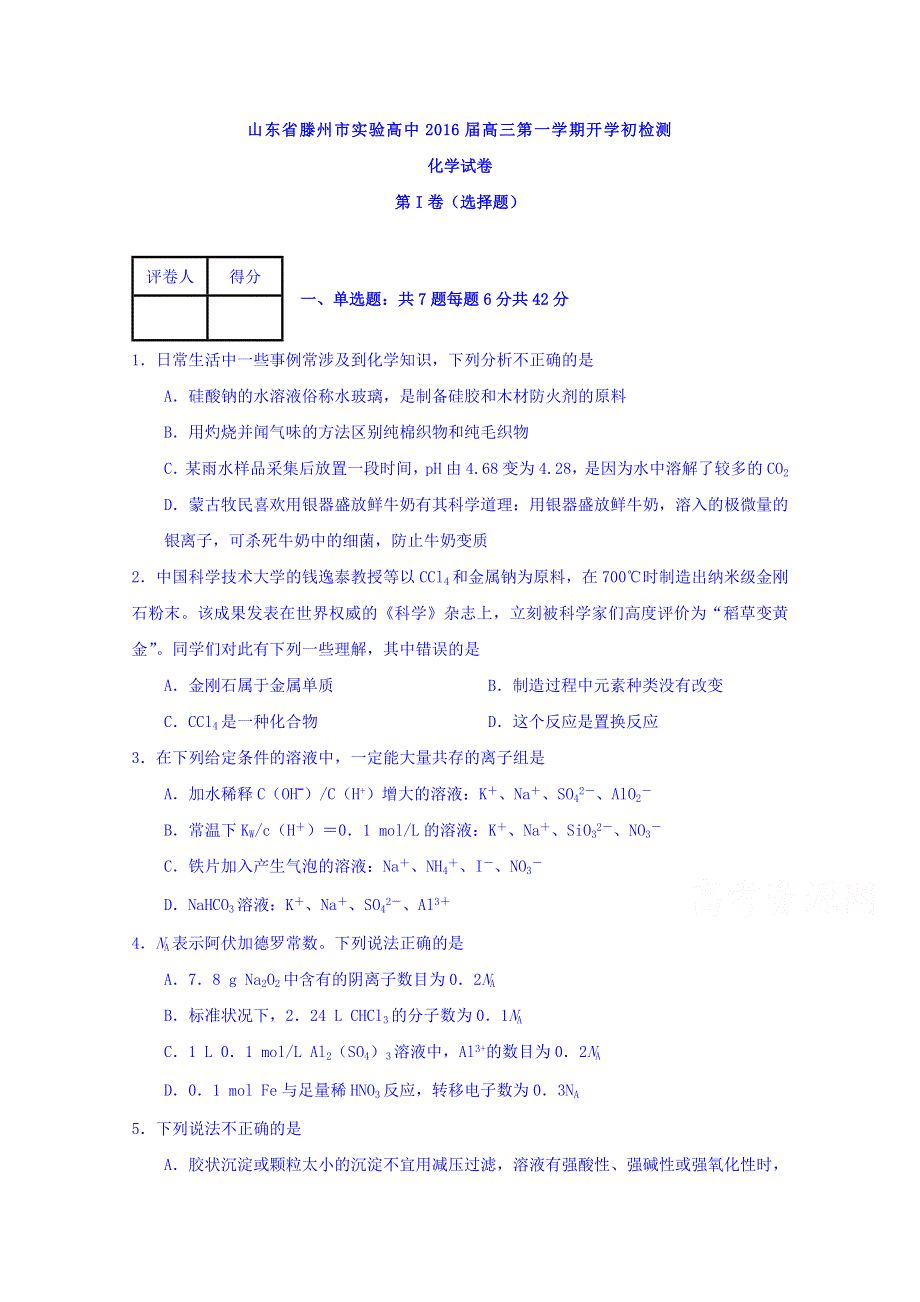 山东省滕州市实验高中 2016 届高三第一学期开学初检测
化学试卷
第 I 卷（选择题）
评卷人 得分
一、单选题：共 7 题每题 6 分共 42 分
1．日常生活中一些事例常涉及到化学知识，下列分析不正确的是
A．硅酸钠的水溶液俗称水玻璃，是制备硅胶和木材防火剂的原料
B．用灼烧并闻气味的方法区别纯棉织物和纯毛织物
C．某雨水样品采集后放置一段时间，pH 由 4.68 变为 4.28，是因为水中溶解了较多的 CO₂
D．蒙古牧民喜欢用银器盛放鲜牛奶有其科学道理：用银器盛放鲜牛奶，溶入的极微量的
银离子，可杀死牛奶中的细菌，防止牛奶变质
2．中国科学技术大学的钱逸泰教授等以 CCl₄ 和金属钠为原料，在 700℃时制造出纳米级金刚
石粉末。该成果发表在世界权威的《科学》杂志上，立刻被科学家们高度评价为“稻草变黄
金”。同学们对此有下列一些理解，其中错误的是
A．金刚石属于金属单质 B．制造过程中元素种类没有改变
C．CCl₄ 是一种化合物 D．这个反应是置换反应
3．在下列给定条件的溶液中，一定能大量共存的离子组是
A．加水稀释 C（OH⁻）/C（H⁺）增大的溶液：K⁺、Na⁺、SO₄²⁻、AlO₂⁻
B．常温下 K_W/c（H⁺）＝0．1 mol/L 的溶液：K⁺、Na⁺、SiO₃²⁻、NO₃⁻
C．铁片加入产生气泡的溶液：Na⁺、NH₄⁺、I⁻、NO₃⁻
D．NaHCO₃ 溶液：K⁺、Na⁺、SO₄²⁻、Al³⁺
高考资源网
4．N_A 表示阿伏加德罗常数。下列说法正确的是
A．7．8 g Na₂O₂ 中含有的阴离子数目为 0．2N_A
B．标准状况下，2．24 L CHCl₃ 的分子数为 0．1N_A
C．1 L 0．1 mol/L Al₂（SO₄）₃ 溶液中，Al³⁺的数目为 0．2N_A
D．0．1 mol Fe 与足量稀 HNO₃ 反应，转移电子数为 0．3N_A
5．下列说法不正确的是
A．胶状沉淀或颗粒太小的沉淀不宜用减压过滤，溶液有强酸性、强碱性或强氧化性时，